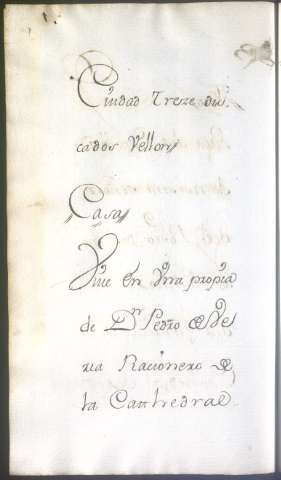 Ciudad Treze du
cados Vellon
Casa
Vive en una propia
de Dn Pedro de Ne
ria Razionero de
la Cathedral